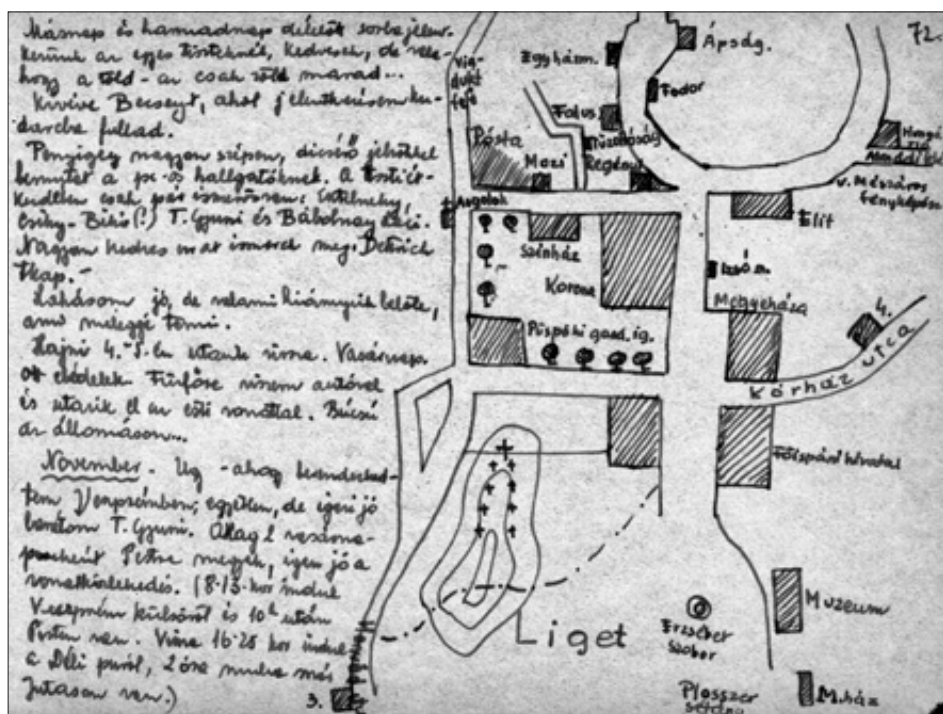 Másnap és harmadnap délelőtt sorba jelent-
kezünk az egyes tiszteknél, kedvesek, de
hogy a zöld - az csak zöld marad...
Kivéve Becseyt, ahol jelentkezésem ku-
darcba fullad.
Penzigey nagyon szépen, dicsérő jelzőkkel
bemutat a hallgatóknak. A tiszti ét-
kezdében csak pár ismerősöm:
Csiky-Békis(!) T. Gyuri és Bábolnay Laci.
Nagyon kedves ismerek meg: Dettrich
tkap. -
Lakásom jó, de valami hiányzik belőle,
ami meleggé tenni.
4.-5.-én utazik vissza. Vasárnap
ott ebédelek. Fürfőre viszem autóval
és utazik el az esti vonattal. Búcsú
az állomáson...
November. Úgy-ahogy berendezked-
tem Veszprémben; egyetlen, de igen jó
barátom T. Gyuri. Átlag 2 vasárna-
ponként Pestre megyek, igen jó a
vonatközlekedés. (8.13-kor indul
Veszprém külsőről és 10h után
Pesten van. Vissza 16.25 kor indul
a Déli puról, 2 óra mulva már
Jutason van.)
72.
Viaduct felé
Egyházm.
Ápság.
Fodor
Falus.
Tűzoltóság
Posta
Mozi
v. Mészáros
fényképész
Angolok
Elit
Színház
Korona
Megyeháza
Püspöki gazd. ig.
4.
Kórház utca
Főispáni hivatal
Muzeum
Liget
Erzsébet
Szobor
3.
Plosszer
sétány
M.ház